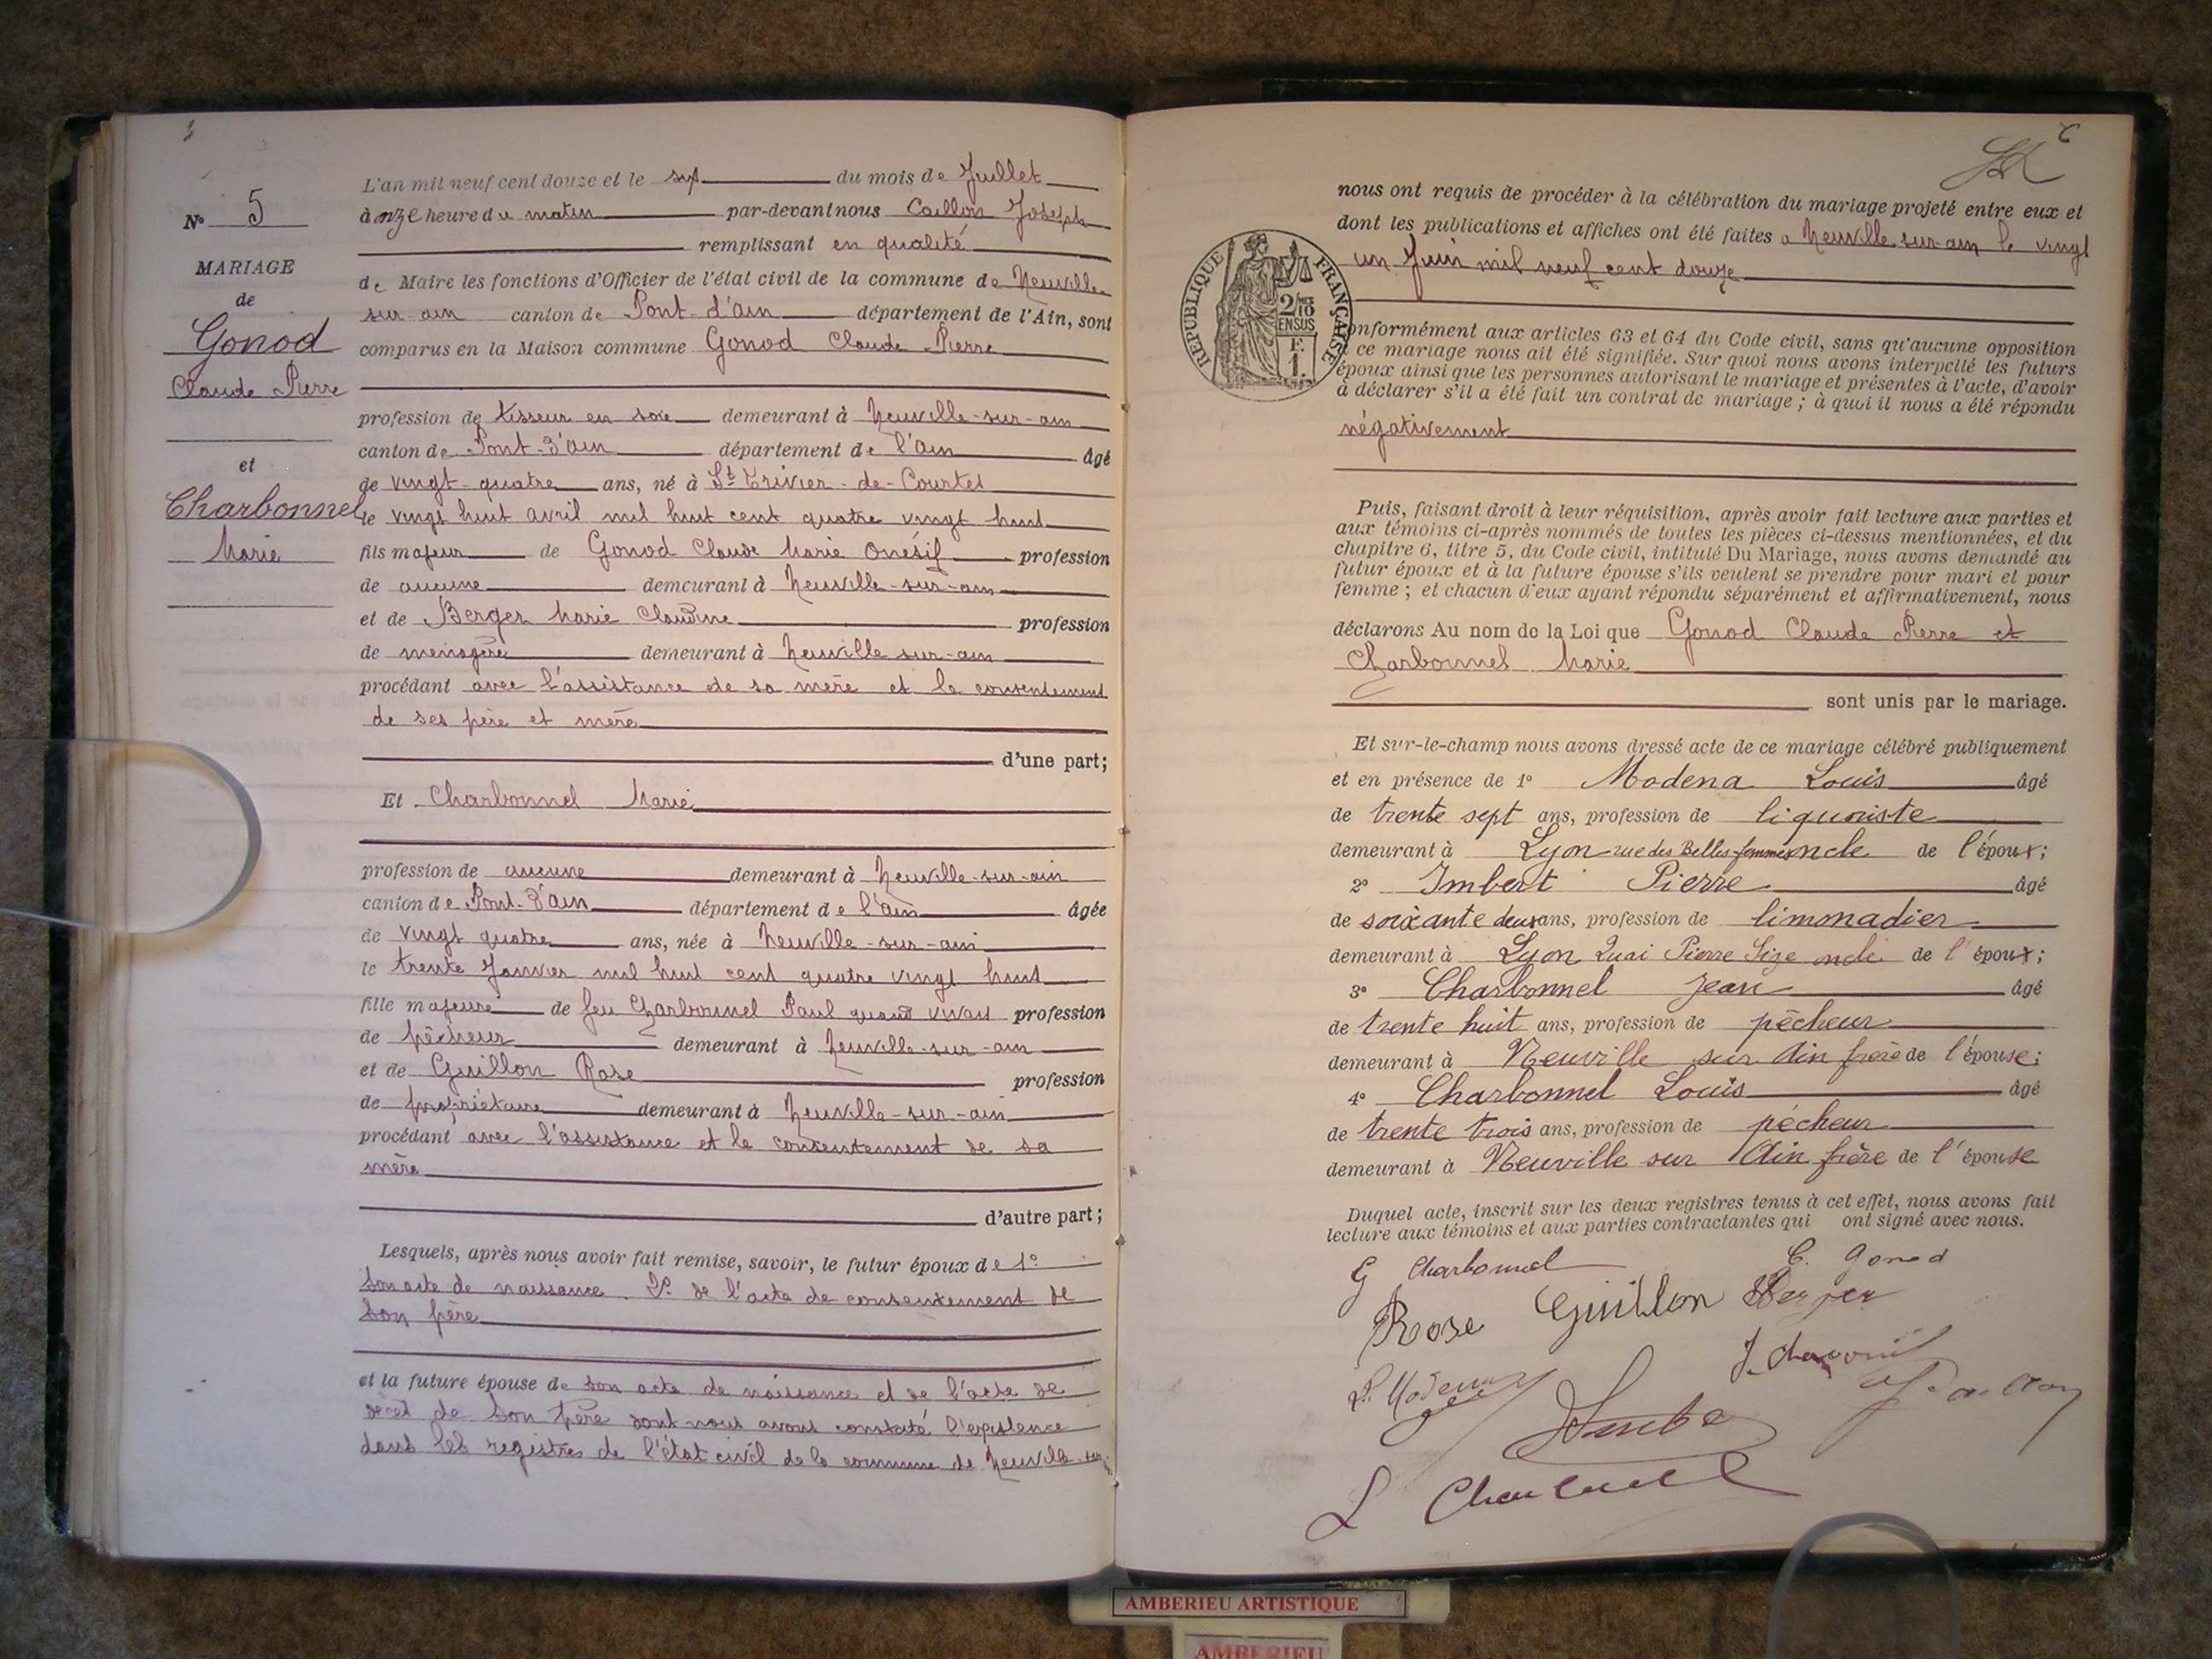 N° 5
MARIAGE
de
Gonod
Claude Pierre
et
Charbonnel
Marie
L'an mil neuf cent douze et le sept du mois de Juillet
à onze heure du matin par-devant nous Caillon Joseph
remplissant en qualité
de Maire les fonctions d'Officier de l'état civil de la commune de Neuville
sur-ain canton de Pont-d'ain département de l'Ain, sont
comparus en la Maison commune Gonod Claude Pierre
profession de tisseur en soie demeurant à Neuville-sur-ain
canton de Pont-d'ain département de l'ain âgé
de vingt-quatre ans, né à St Trivier-de-Courtes
le vingt huit avril mil huit cent quatre vingt huit
fils majeur de Gonod Claude Marie Onésif profession
de aucune demeurant à Neuville-sur-ain
et de Berger Marie Claudine profession
de ménagère demeurant à Neuville sur-ain
procédant avec l'assistance de sa mère et le consentement
de ses père et mère
d'une part;
Et Charbonnel Marie
profession de aucune demeurant à Neuville-sur-ain
canton de Pont-d'ain département de l'ain âgée
de vingt quatre ans, née à Neuville-sur-ain
le trente Janvier mil huit cent quatre vingt huit
fille majeure de feu Charbonnel Paul quand vivait profession
de pêcheur demeurant à Neuville-sur-ain
et de Guillon Rose profession
de propriétaire demeurant à Neuville-sur-ain
procédant avec l'assistance et le consentement de sa
mère
d'autre part;
Lesquels, après nous avoir fait remise, savoir, le futur époux de 1°
son acte de naissance. 2° de l'acte de consentement de
son père
et la future épouse de son acte de naissance et de l'acte de
décès de son père dont nous avons constaté l'existence
dans les registres de l'état civil de la commune de Neuville-sur
6
nous ont requis de procéder à la célébration du mariage projeté entre eux et
dont les publications et affiches ont été faites a Neuville sur-ain le vingt
un Juin mil neuf cent douze
RÉPUBLIQUE FRANÇAISE
2/10
EN SUS
F.
1.
conformément aux articles 63 et 64 du Code civil, sans qu'aucune opposition
à ce mariage nous ait été signifiée. Sur quoi nous avons interpellé les futurs
époux ainsi que les personnes autorisant le mariage et présentes à l'acte, d'avoir
à déclarer s'il a été fait un contrat de mariage; à quoi il nous a été répondu
négativement
Puis, faisant droit à leur réquisition, après avoir fait lecture aux parties et
aux témoins ci-après nommés de toutes les pièces ci-dessus mentionnées, et du
chapitre 6, titre 5, du Code civil, intitulé Du Mariage, nous avons demandé au
futur époux et à la future épouse s'ils veulent se prendre pour mari et pour
femme; et chacun d'eux ayant répondu séparément et affirmativement, nous
déclarons Au nom de la Loi que Gonod Claude Pierre et
Charbonnel Marie
sont unis par le mariage.
Et sur-le-champ nous avons dressé acte de ce mariage célébré publiquement
et en présence de 1° Modena Louis âgé
de trente sept ans, profession de liquoriste
demeurant à Lyon rue des Belles femmes oncle de l'époux;
2° Imbert Pierre âgé
de soixante deux ans, profession de limonadier
demeurant à Lyon Quai Pierre Size oncle de l'époux;
3° Charbonnel Jean âgé
de trente huit ans, profession de pêcheur
demeurant à Neuville sur Ain frère de l'épouse;
4° Charbonnel Louis âgé
de trente trois ans, profession de pêcheur
demeurant à Neuville sur Ain frère de l'épouse
Duquel acte, inscrit sur les deux registres tenus à cet effet, nous avons fait
lecture aux témoins et aux parties contractantes qui ont signé avec nous.
Charbonnel C. Gonod
Rose Guillon Berger
L. Modena
L Charbonnel
AMBERIEU ARTISTIQUE
AMBERIEU